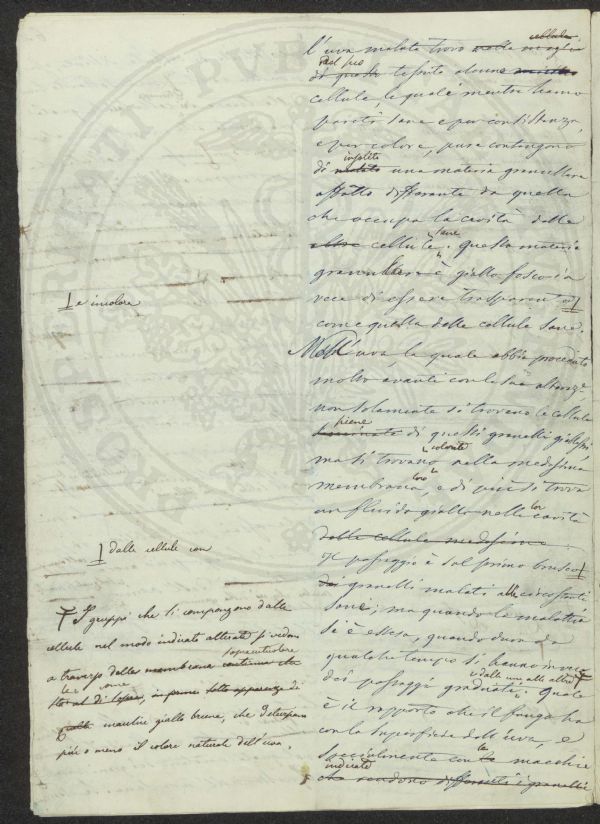 l'uva malata trovo nelle maglie cellule
di questo del suo tessuto alcune
cellule, le quale mentre hanno
pareti sane e per consistenza,
e per colore, pure contengono
di malato insolito una materia granellosa
affatto differente da quella
che occupa la cavità delle
altre cellule sane. questa materia
è giallo fosca in
vece di essere trasparente
come quella delle cellule sane.
Nell'uva, la quale abbia proceduto
molto avanti con le sue alterazi,
non solamente si trovano le cellule
piene di questi granelli giallastri
ma si trovano colorite nella medesima
loro membrana, e di più si trova
un fluido giallo nelle lor cavità
delle cellule medesime.
Il passaggio è sul primo brusco
dei granelli malati alle circostanti
sane; ma quando la malattia
si è estesa, quando dura da
qualche tempo si hanno invece
dei passaggi graduati dalle une alle altre. Quale
è il rapporto che il fungo ha
con la superficie dell'uva, e
specialmente con le macchie
indicate che rendono differenti i granelli
e incolora
dalle cellule con
I gruppi che si compongono dalle
cellule nel modo indicato alterate si vedono
a traverso della membrana continua che soprastante
le sane
di
quelle macchie giallo brune, che deturpano
più o meno il colore naturale dell'uva.